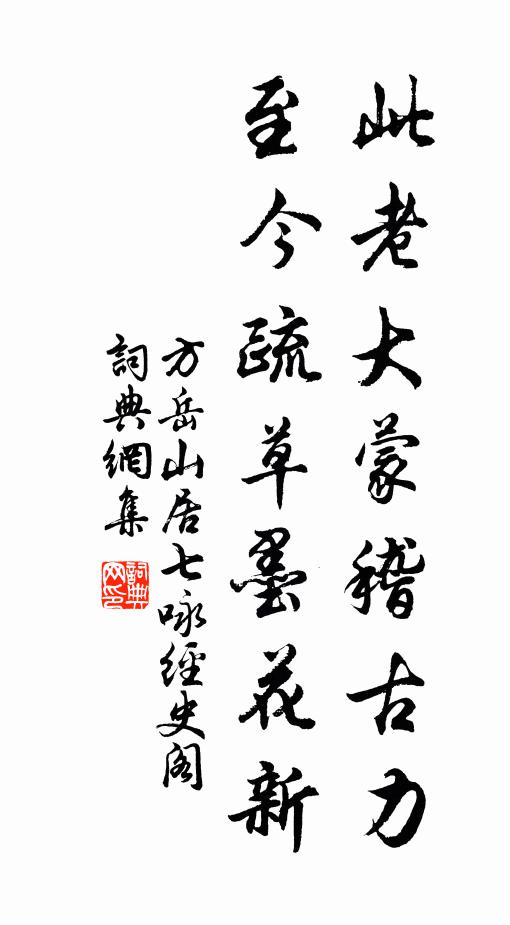 此老大蒙稽古力
至今疏草墨花新
方岳山居七咏經史阁
詞典網集
詞典网印